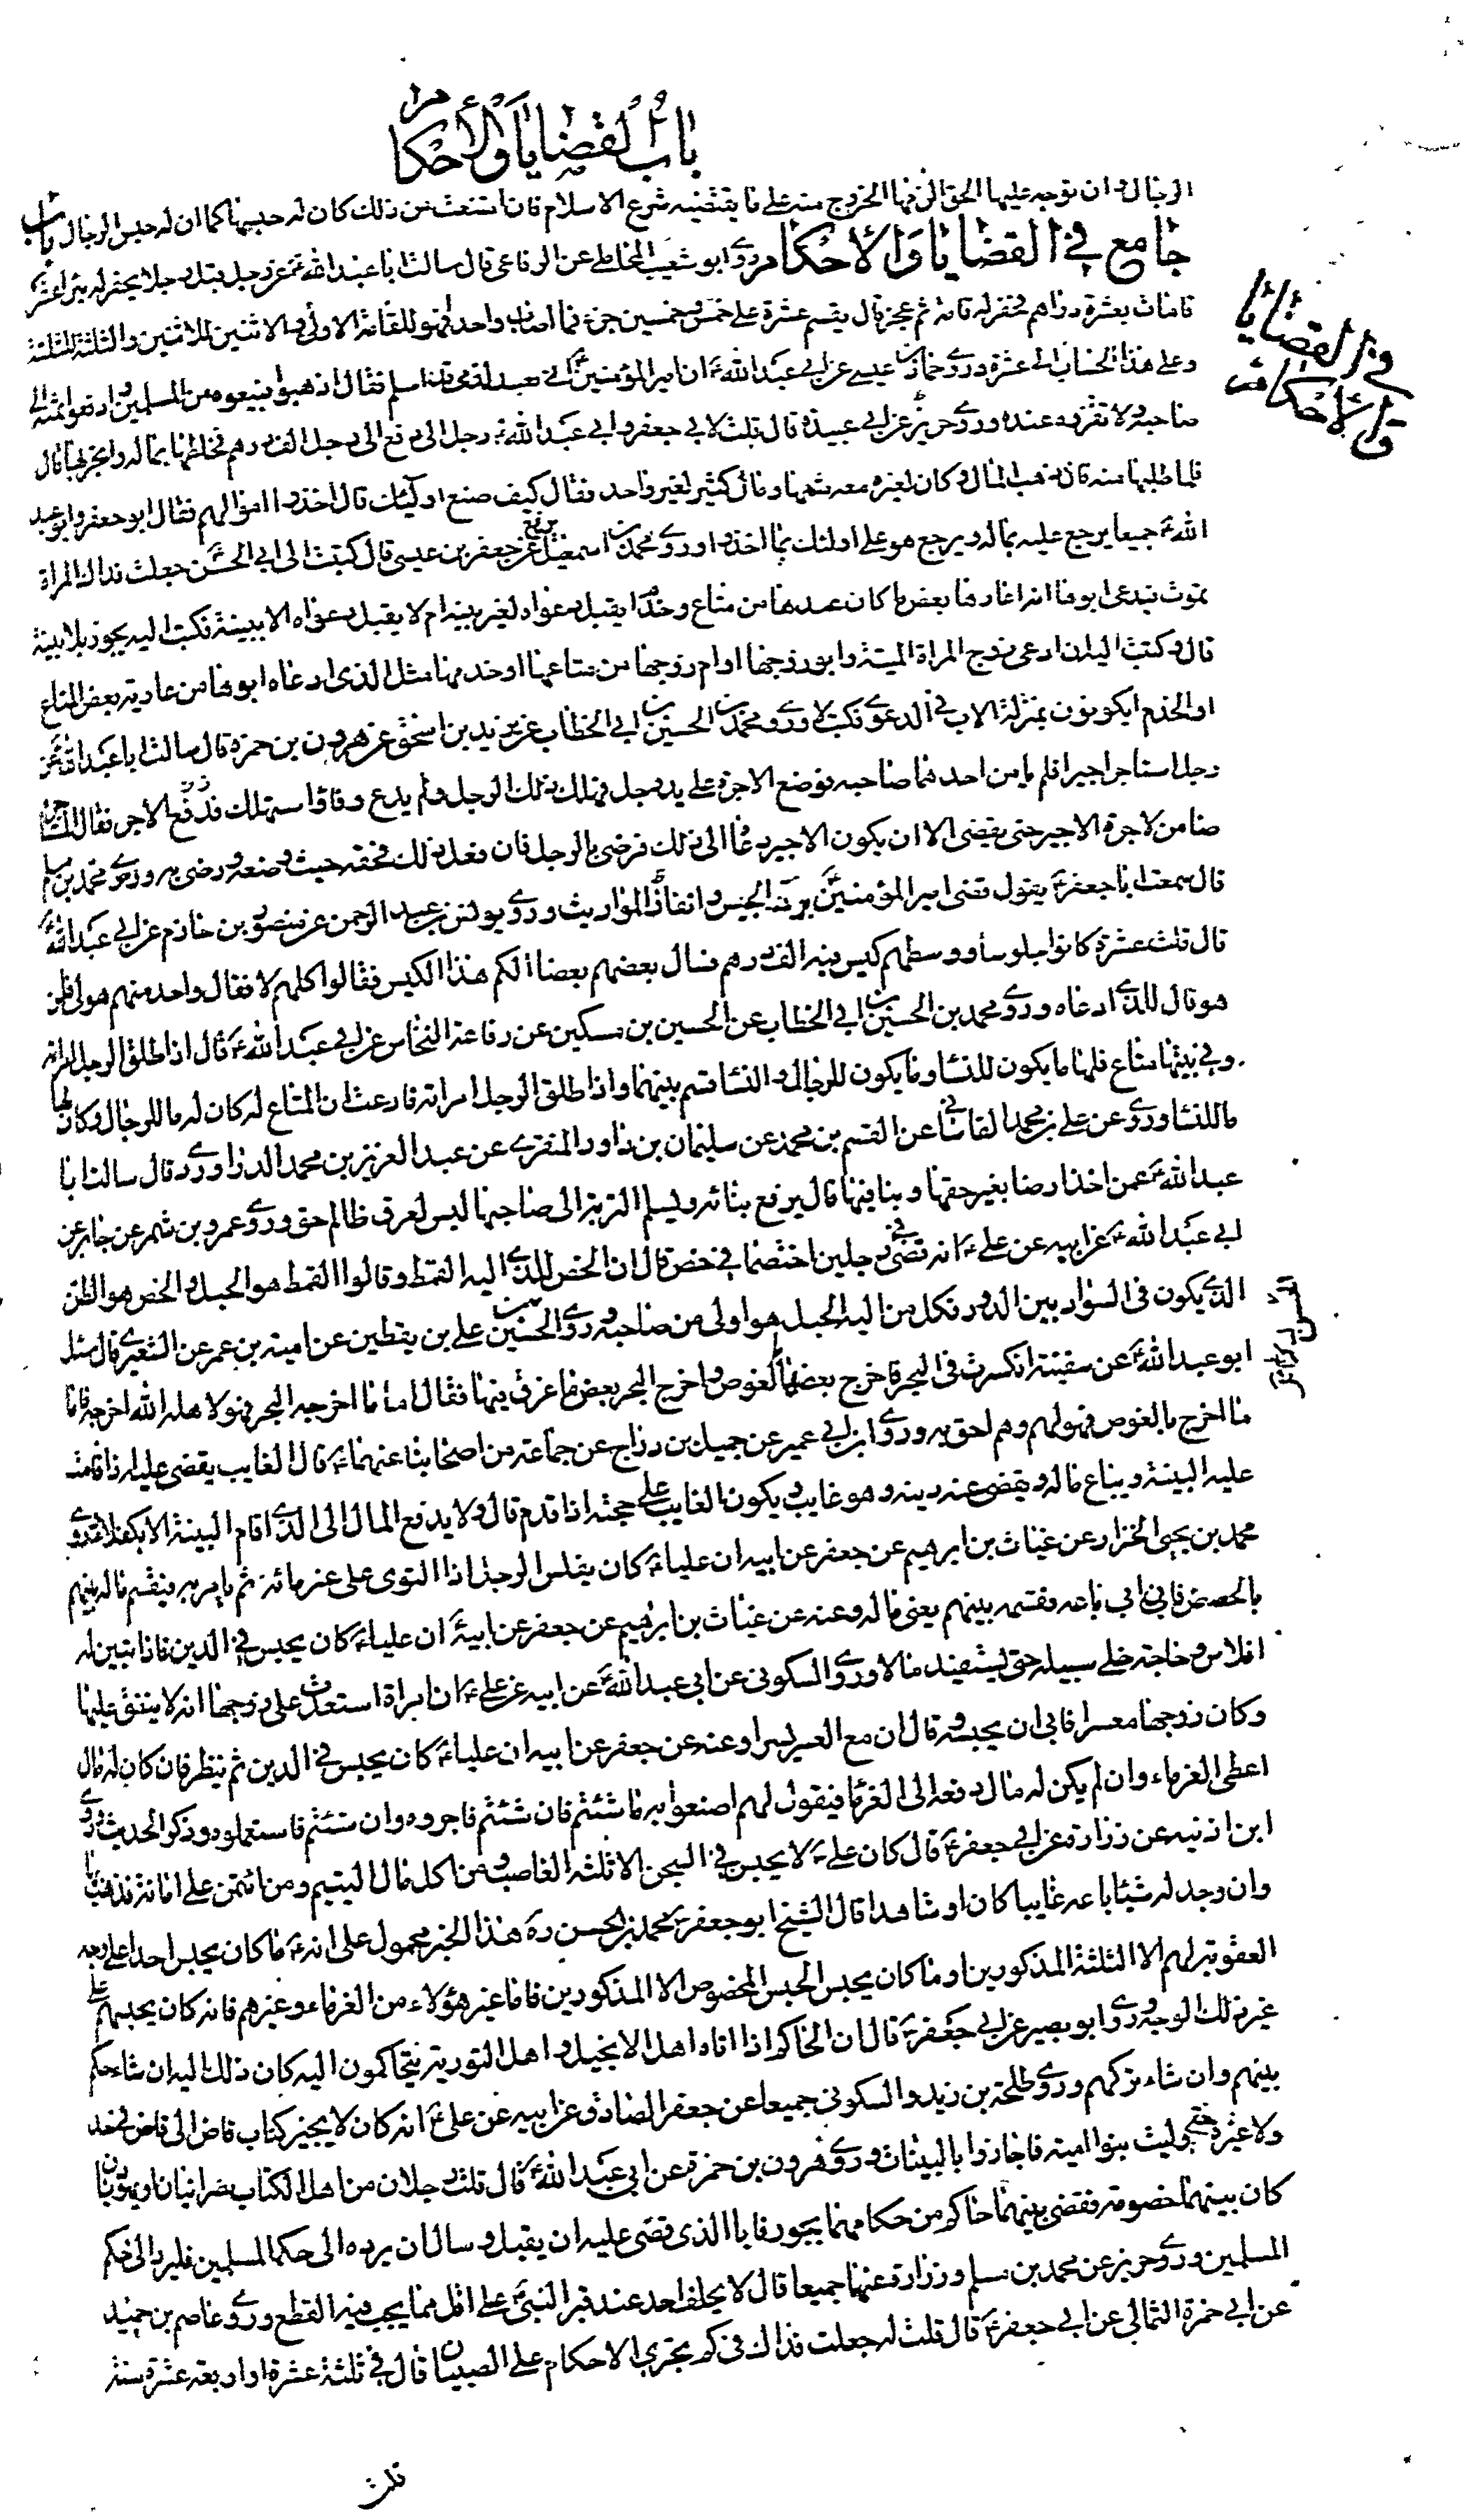 باب القضايا والأحكام
الرجال وان توجه عليها الحق الزمها الخروج منه على ما يقتضيه شرع الاسلام فان امتنعت من ذلك كان له حبسها كما ان له حبس الرجال باب
جامع في القضايا والأحكام روى ابو شعيب المحاملي عن الرفاعي قال سالت ابا عبد الله ع عن رجل قبل رجلا يحفر له بئرا عشر
قامات بعشرة دراهم فحفر له قامة ثم عجز قال يقسم عشرة على خمس وخمسين جزء فما اصاب واحد فهو للقامة الاولى والاثنين للاثنين والثلثة للثلثة
وعلى هذا الحساب الى عشرة وروى حماد بن عيسى عن ابي عبد الله ع ان امير المؤمنين ع اتي بعبد لذمي قد اسلم فقال اذهبوا فبيعوه من المسلمين وادفعوا ثمنه الى
صاحبه ولا تقروه عنده وروى حريز عن ابي عبيدة قال قلت لابي جعفر وابي عبد الله ع رجل دفع الى رجل الف درهم يخلطها بماله ويتجر بها قال
فلما طلبها منه قال ذهب المال وكان لغيره معه مثلها ومال كثير لغير واحد فقال كيف صنع اولئك قال اخذوا اموالهم فقال ابو جعفر وابو عبد
الله ع جميعا يرجع عليه بماله ويرجع هو على اولئك بما اخذوا وروى محمد بن اسمعيل عن جعفر بن عيسى قال كتبت الى ابي الحسن جعلت فداك المراة
تموت فيدعى ابوها انه اعارها بعض ما كان عندها من متاع وخدم ايقبل دعواه لغير بينة ام لا يقبل دعواه الا ببينة فكتب اليه يجوز بلا بينة
قال وكتبت اليه ان ادعى زوج المراة الميتة وابو زوجها او ام زوجها من متاعها او خدمها مثل الذى ادعاه ابوها من عارية بعض المتاع
او الخدم ايكونون بمنزلة الاب في الدعوى فكتب لا وروى محمد بن الحسين بن ابي الخطاب عن يزيد بن اسحق عن هرون بن حمزة قال سالت ابا عبد الله ع عن
رجل استاجر اجيرا فلم يامن احدهما صاحبه فوضع الاجرة على يد رجل فهلك ذلك الرجل ولم يدع وفاء واستهلك الاجر فقال المستاجر
ضامن لاجرة الاجير حتى يقضى الا ان يكون الاجير دعاه الى ذلك فرضى بالرجل فان فعل ذلك فحقه حيث وضعه ورضى به وروى محمد بن مسلم
قال سمعت ابا جعفر ع يقول قضى امير المؤمنين ع برد الحبيس وانفاذ المواريث وروى يونس بن عبد الرحمن عن منصور بن حازم عن ابي عبد الله ع
قال قلت عشرة كانوا جلوسا ووسطهم كيس فيه الف درهم فسال بعضهم بعضا الكم هذا الكيس فقالوا كلهم لا فقال واحد منهم هو لي فلمن
هو قال للذى ادعاه وروى محمد بن الحسين بن ابي الخطاب عن الحسين بن مسكين عن رفاعة النخاس عن ابي عبد الله ع قال اذا طلق الرجل امراته
وفي بيتها متاع فلها ما يكون للنساء وما يكون للرجال والنساء قسم بينهما واذا طلق الرجل امراته فادعت ان المتاع لها كان له ما للرجال وكان لها
ما للنساء وروى عن علي بن محمد القاساني عن القسم بن محمد عن سليمان بن داود المنقرى عن عبد العزيز بن محمد الدراوردى قال سالت ابا
عبد الله ع عمن اخذ ارضا بغير حقها وبنا فيها قال يرفع بنائه ويسلم التربة الى صاحبها ليس لعرق ظالم حق وروى عمرو بن شمر عن جابر عن
ابي عبد الله ع عن ابيه عن علي ع انه قضى في رجلين اختصما في خص قال ان الخص للذى اليه القمط وقالوا القمط هو الحبل والخص هو الطن
الذى يكون في السواد بين الدور فكل من اليه الحبل هو اولى من صاحبه وروى الحسين بن علي بن يقطين عن امية بن عمر عن الشعيرى قال سئل
ابو عبد الله ع عن سفينة انكسرت في البحر فاخرج بعضها بالغوص واخرج البحر بعض ما غرق فيها فقال اما ما اخرجه البحر فهو لاهله الله اخرجه واما
ما اخرج بالغوص فهو لهم وهم احق به وروى ابن ابي عمير عن جميل بن دراج عن جماعة من اصحابنا عنهما ع قال الغايب يقضى عليه اذا قامت
عليه البينة ويباع ماله ويقضى عنه دينه وهو غايب ويكون الغايب على حجته اذا قدم قال ولا يدفع المال الى الذى اقام البينة الا بكفلاء وروى
محمد بن يحيى الخزاز عن غياث بن ابرهيم عن جعفر عن ابيه ان عليا ع كان يفلس الرجل اذا التوى على غرمائه ثم يامر به فيقسم ماله بينهم
بالحصص فان ابى باعه فقسمه بينهم يعنى ماله وعنه عن غياث بن ابرهيم عن جعفر عن ابيه ان عليا ع كان يحبس في الدين فاذا تبين له
افلاس وحاجة خلى سبيله حتى يستفيد مالا وروى السكونى عن ابى عبد الله ع عن ابيه عن علي ع ان امراة استعدت على زوجها انه لا ينفق عليها
وكان زوجها معسرا فابى ان يحبسه وقال ان مع العسر يسرا وعنه عن جعفر عن ابيه ان عليا ع كان يحبس في الدين ثم ينظر فان كان له مال
اعطى الغرماء وان لم يكن له مال دفعه الى الغرماء فيقول لهم اصنعوا به ما شئتم فان شئتم فاجروه وان شئتم فاستعملوه وذكر الحديث وروى
ابن اذينه عن زرارة عن ابي جعفر ع قال كان علي ع لا يحبس في السجن الا ثلثة الغاصب ومن اكل مال اليتيم ومن ائتمن على امانة فذهب بها
وان وجد له شيئا باعه غايبا كان او شاهدا قال الشيخ ابو جعفر محمد بن الحسن ره هذا الخبر محمول على انه ع ما كان يحبس احدا على وجه
العقوبة لهم الا الثلثة المذكورين او ما كان يحبس الحبس المخصوص الا المذكورين فاما غير هؤلاء من الغرماء وغيرهم فانه كان يحبسهم على
غير ذلك الوجه وروى ابو بصير عن ابي جعفر ع قال ان الحاكم اذا اتاه اهل الانجيل واهل التورية يتحاكمون اليه كان ذلك اليه ان شاء حكم
بينهم وان شاء تركهم وروى طلحة بن زيد والسكونى جميعا عن جعفر الصادق عن ابيه عن علي ع انه كان لا يجيز كتاب قاض الى قاض في حد
ولا غيره حتى وليت بنو امية فاجازوا بالبينات وروى هرون بن حمزة عن ابى عبد الله ع قال قلت رجلان من اهل الكتاب نصرانيان او يهوديان
كان بينهما خصومة فقضى بينهما حاكم من حكامهما بجور فابا الذى قضى عليه ان يقبل وسال ان يرده الى حكم المسلمين قال يرد الى حكم
المسلمين وروى حريز عن محمد بن مسلم وزرارة عنهما جميعا قال لا يحلف احد عند قبر النبي ص على اقل مما يجب فيه القطع وروى عاصم بن حميد
عن ابي حمزة الثمالي عن ابي جعفر ع قال قلت له جعلت فداك في كم تجرى الاحكام على الصبيان قال في ثلثة عشرة او اربعة عشرة سنة
قلت
في القضايا
والأحكام